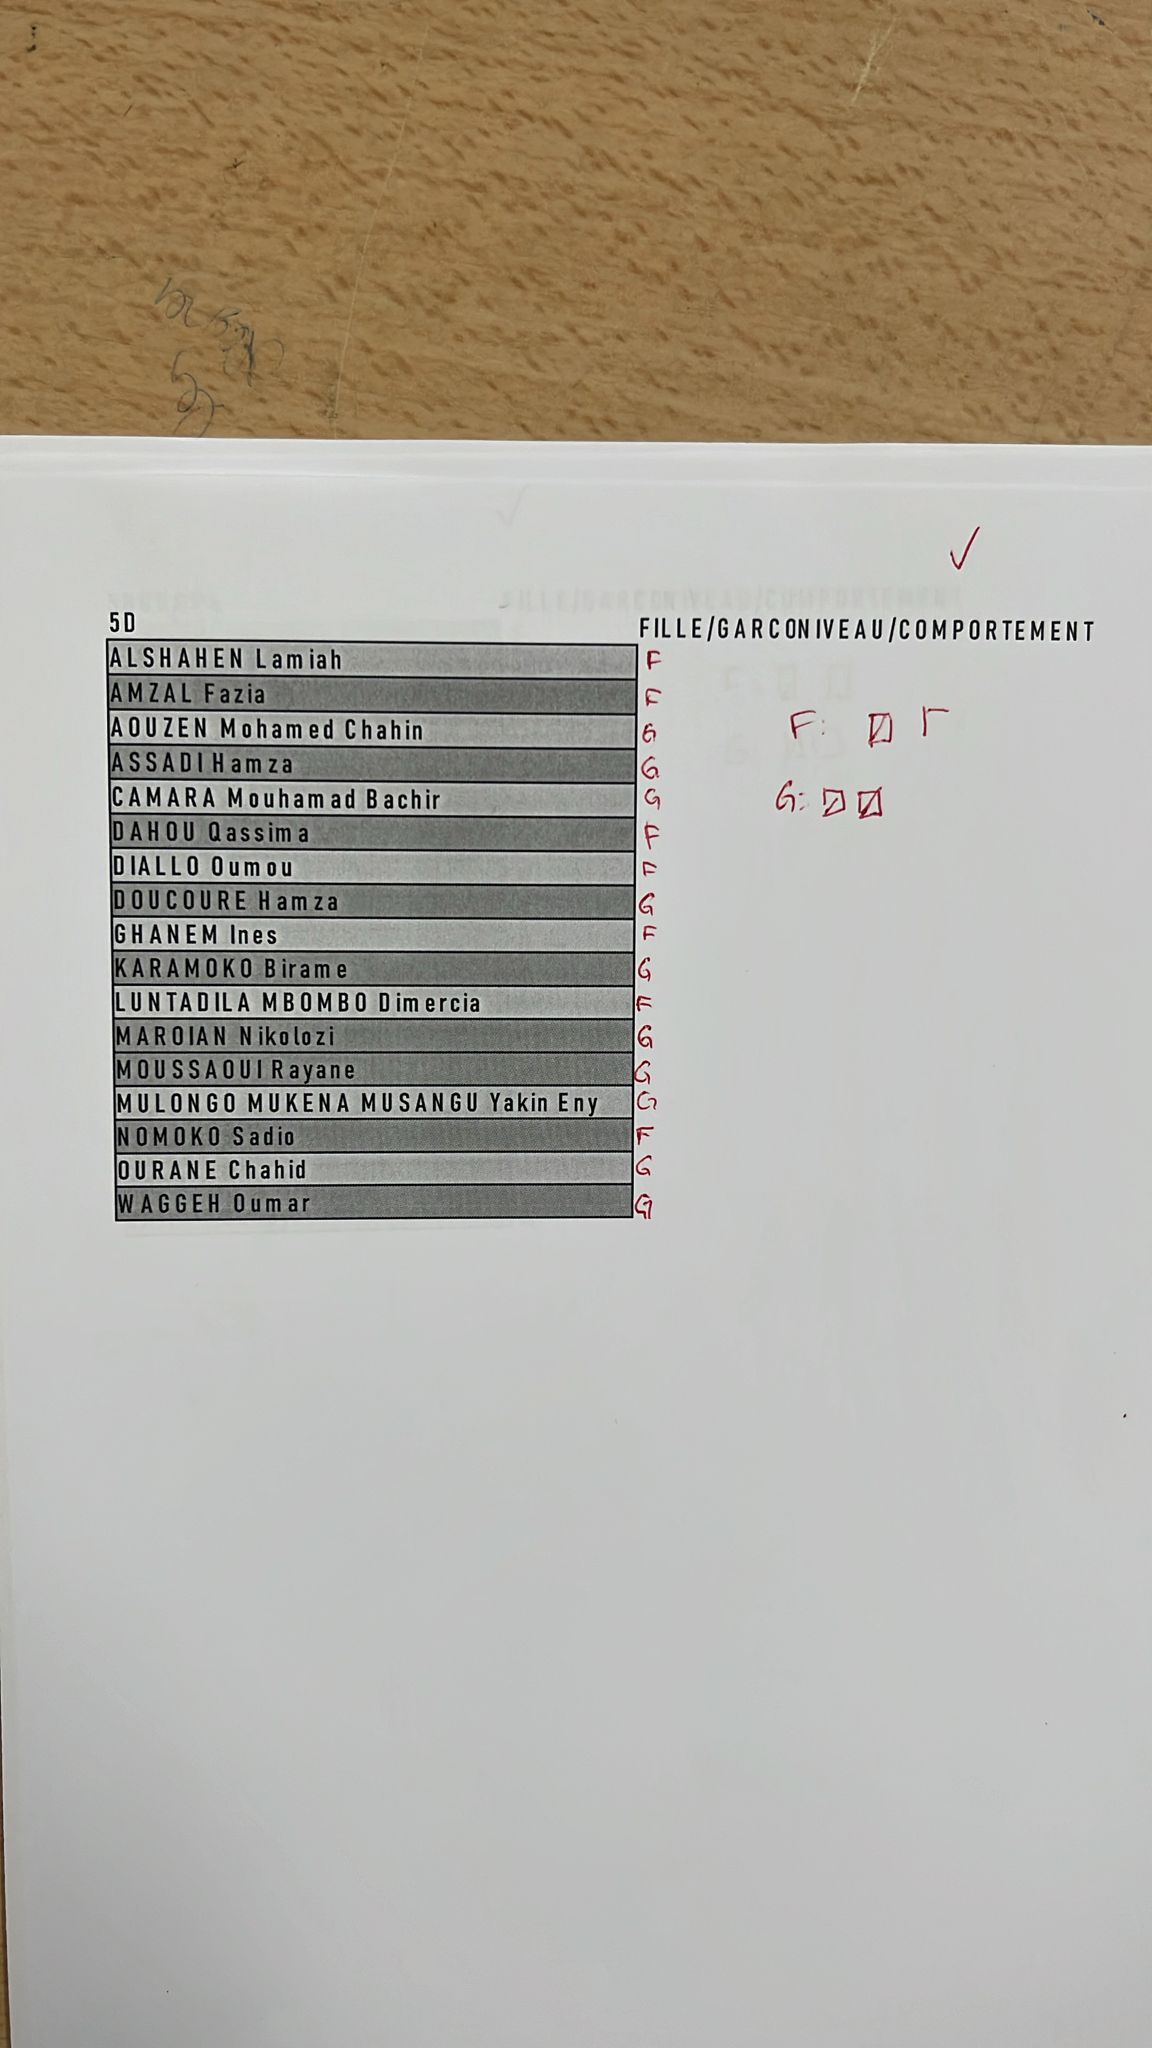 5D
FILLE/GARCONIVEAU/COMPORTEMENT
ALSHAHEN Lamiah F
AMZAL Fazia F
AOUZEN Mohamed Chahin G
ASSADI Hamza G
CAMARA Mouhamad Bachir G
DAHOU Qassima F
DIALLO Oumou F
DOUCOURE Hamza G
GHANEM Ines F
KARAMOKO Birame G
LUNTADILA MBOMBO Dimercia F
MAROIAN Nikolozi G
MOUSSAOUI Rayane G
MULONGO MUKENA MUSANGU Yakin Eny G
NOMOKO Sadio F
OURANE Chahid G
WAGGEH Oumar G
F:
G: